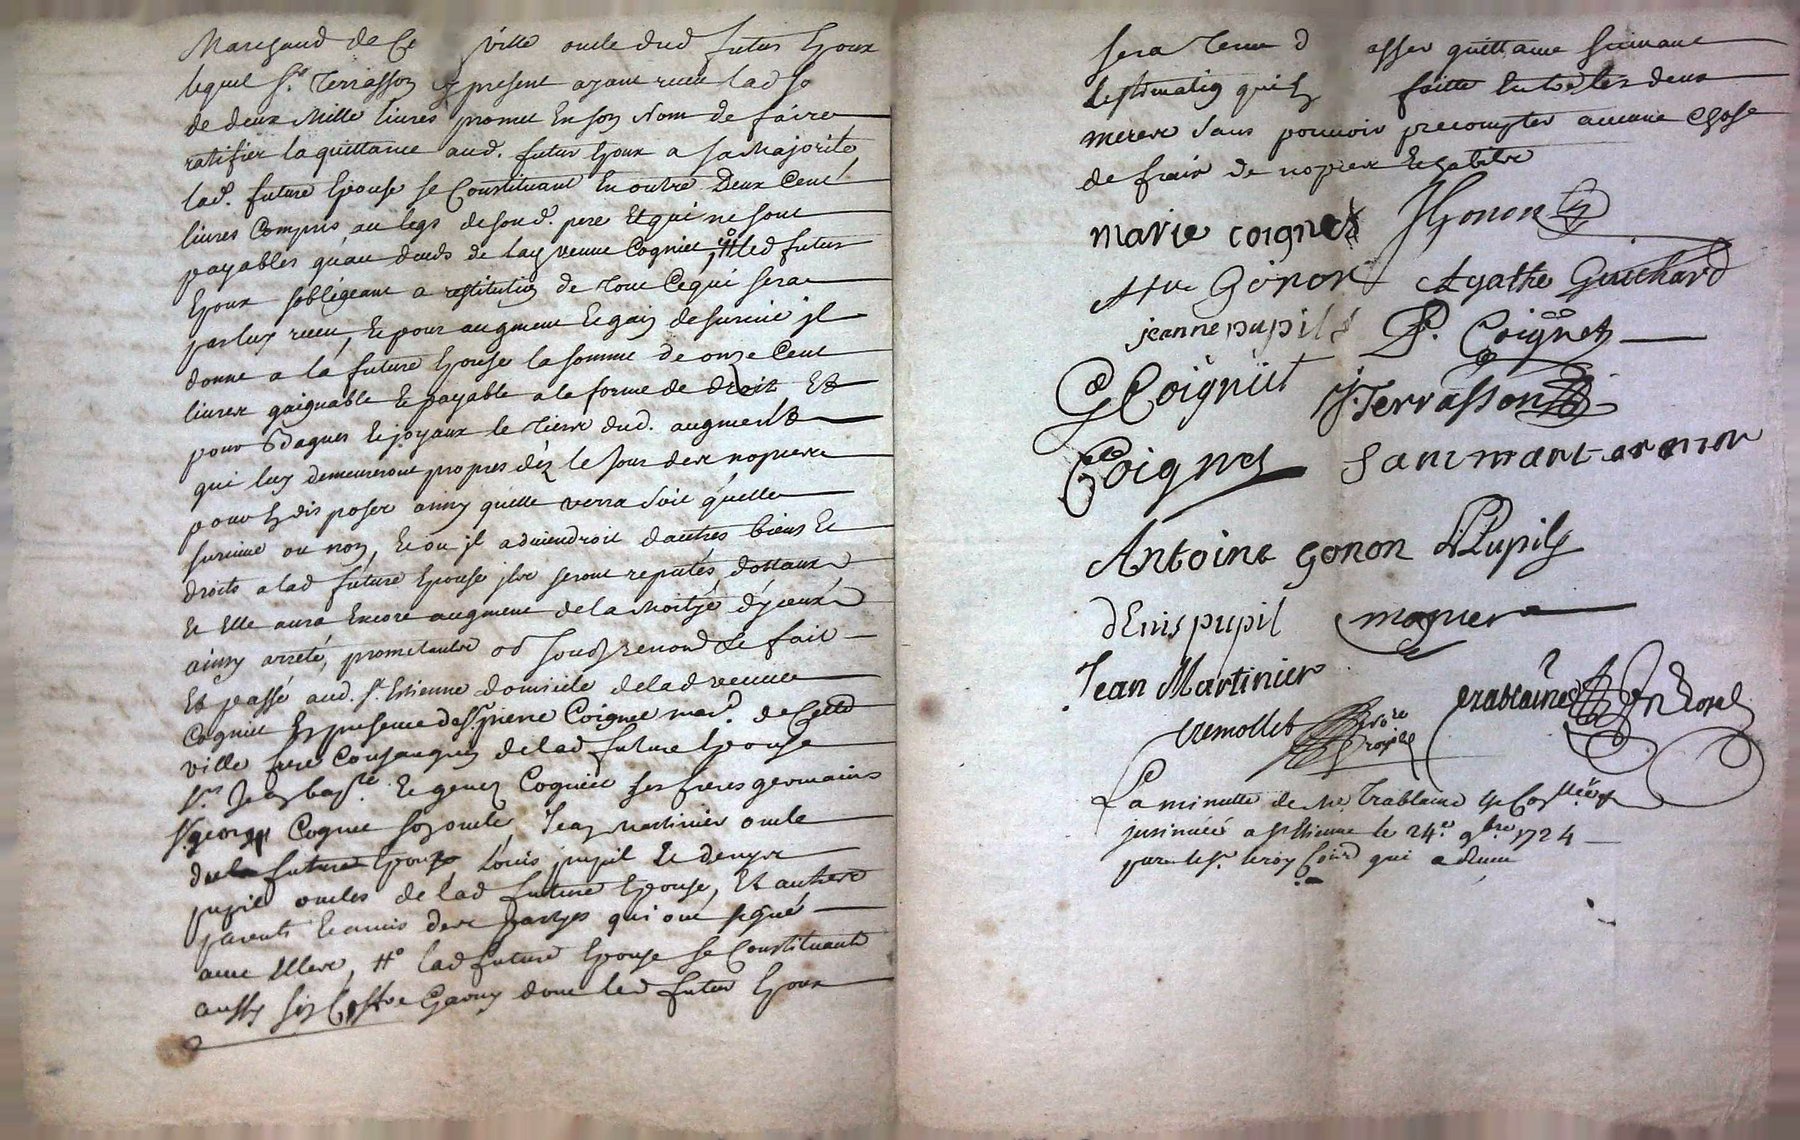 Marchand de Ce ville oncle dud futur Epoux
lequel Sr. Terrasson cy present ayant receu lad so
de deux Mille livres promet En son Nom de faire
ratifier la quittance aud. futur Epoux a sa Majorité
lad. future Epouse se Constituant En outre Deux Cent
livres Compris au legs de sond. pere Et qui ne sont
payables qu'au deceds de lad veuve Cogniet, # led futur
Epoux sobligeant a restitution de tout Ce qui sera
par luy receu, Et pour augment Et gain de survie jl
donne a la future Epouse la somme de onze Cent
livres gaignable Et payable a la forme de droit Et
pour Bagues Et joyaux le tiers dud. augment
qui luy demeureront propres déz le jour des nopces
pour En disposer ainsy quelle verra soit quelle
survive ou non, Et ou jl adviendroit dautres biens Et
droits a lad future Epouse jls seront reputés dottaux
Et Elle aura Encore augment de la Moitjé d'jceux
ainsy arresté, promettants ob renond Et fait
Et passé aud. St. Estienne domicile de lad veuve
Cogniet En presence de Sr. pierre Coignet mard. de Cette
ville frere Consanguin de lad future Epouse
Srs Jean bapte Et Cogniet ses freres germains
Sr george Cogniet son oncle, Jean Martinier oncle
de la future Epouse Louis pupil Et denys
pupil oncles de lad future Epouse, Et autres
parents Et amis des partyes qui ont signé
avec Elles, # lad future Epouse se Constituant
aussy son Coffre Garny dont led futur Epoux
sera tenu d asser quittance suivant
lestimation qui En faitte Entre les deux
meres sans pouvoir precompter aucune chose
de frais de nopces Et habits
marie coignet JGonon
Gonon Agathe Guichard
jeanne pupil P. Coignet
G Coigniet J Terrasson
Coignet
Antoine gonon L Pupil
dEnis pupil
Jean Martinier
cremollet trablaine
La minutte de Me. Trablaine
jnsinuéé a St Etienne le 24e. 9bre 1724
par le Sr. leroy Com qui a